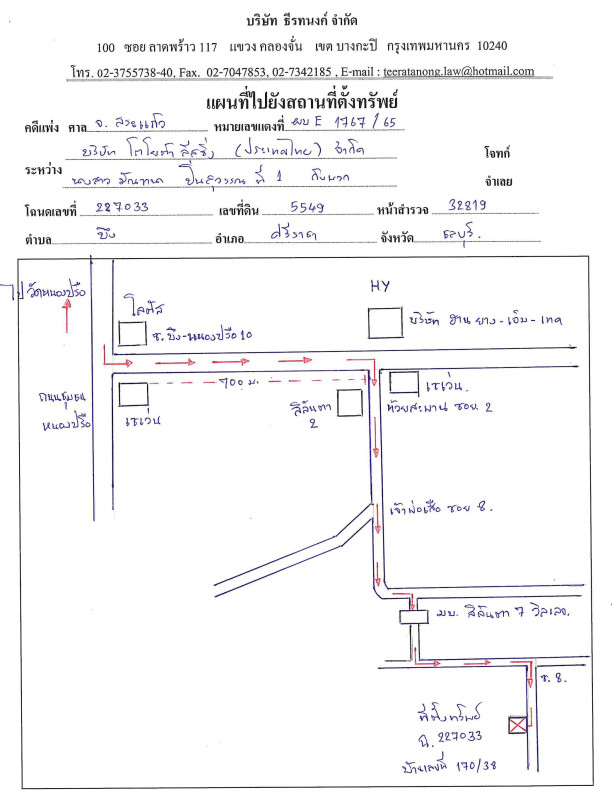 บริษัท ธีรทนงค์ จำกัด
100 ซอย ลาดพร้าว 117 แขวง คลองจั่น เขต บางกะปิ กรุงเทพมหานคร 10240
โทร. 02-3755738-40, Fax. 02-7047853, 02-7342185 , E-mail : teeratanong.law@hotmail.com
แผนที่ไปยังสถานที่ตั้งทรัพย์
คดีแพ่ง ศาล จ. สระแก้ว หมายเลขแดงที่ ผบ E 1767/65
บริษัท โตโยต้า ลีสซิ่ง (ประเทศไทย) จำกัด โจทก์
ระหว่าง นางสาว ปิ่นสุวรรณ ที่ 1 กับพวก จำเลย
โฉนดเลขที่ 227033 เลขที่ดิน 5549 หน้าสำรวจ 32819
ตำบล บึง อำเภอ ศรีราชา จังหวัด ชลบุรี.
ไปวัดหนองปรือ
โลตัส
ซ. บึง-หนองปรือ 10
HY
บริษัท ฮานยาง-เอ็ม-เทค
700 ม.
ถนนชุมชน
หนองปรือ
เซเว่น
สิลันตา
2
เซเว่น.
ห้วยสะพาน ซอย 2
เจ้าพ่อเสือ ซอย 8.
มบ. สิลันตา 7 วิลเลจ.
ซ. 8.
ที่ตั้งทรัพย์
ฉ. 227033
บ้านเลขที่ 170/38